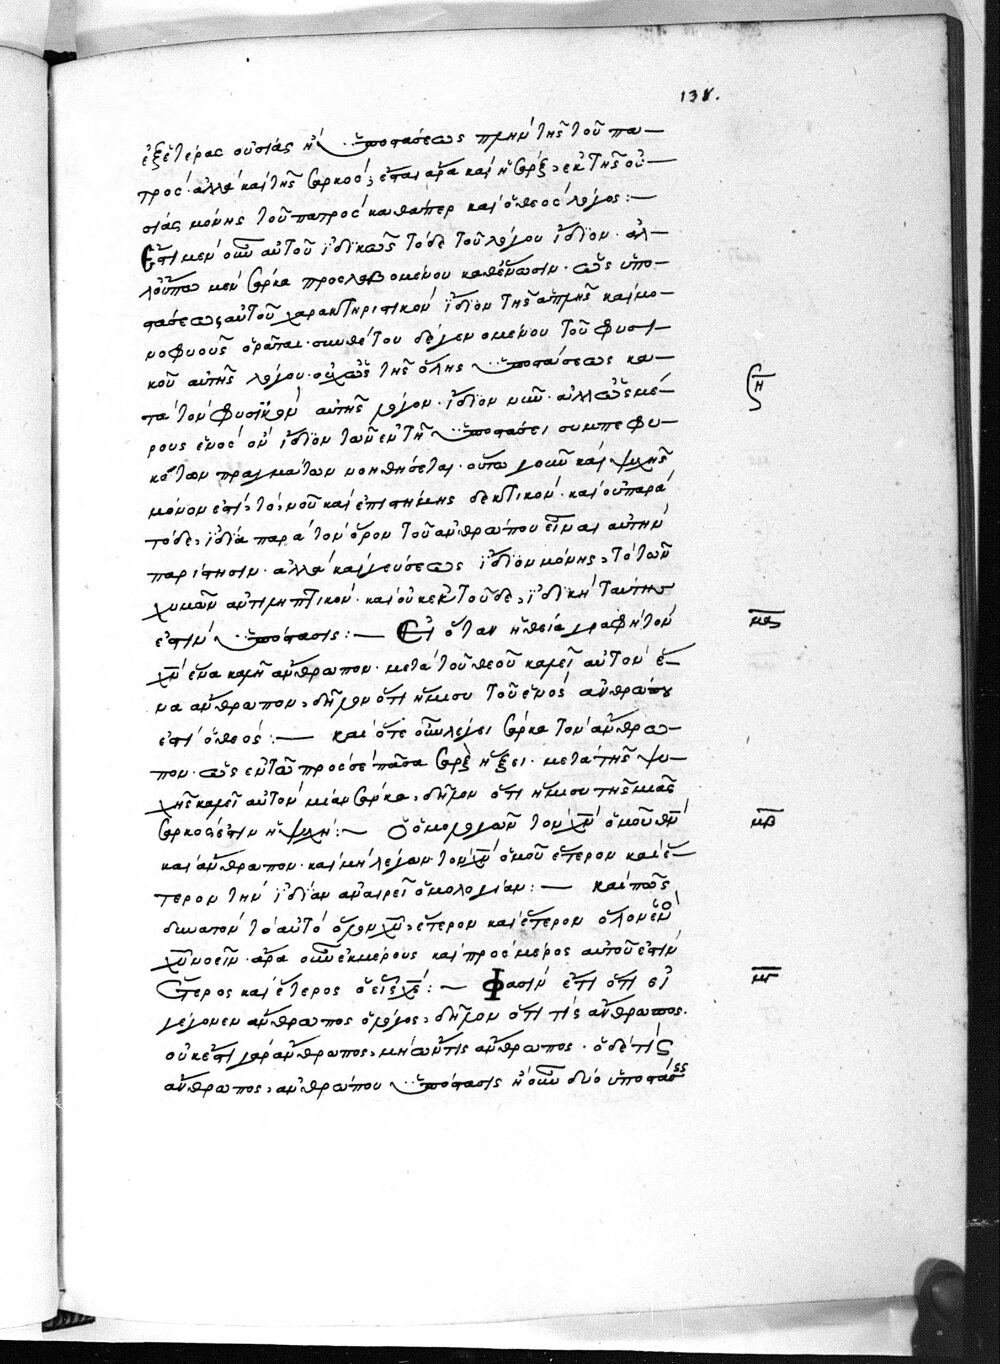 138.
ἐξ ἑτέρας οὐσίας ἢ ὑποστάσεως πλὴν τῆς τοῦ πα-
τρός· ἀλλὰ καὶ τῆς σαρκός, ἔσται ἄρα καὶ ἡ σὰρξ, ἐκ τῆς οὐ-
σίας μόνης τοῦ πατρὸς καθάπερ καὶ ὁ θεὸς λόγος :—
Ἔτι μὲν οὖν αὐτοῦ ἰδικῶς τόδε τοῦ λόγου ἴδιον· ἀλ-
λ' οὔπω μὲν σάρκα προσλαβομένου καθ' ἕνωσιν· ὡς ὑπο-
στάσεως αὐτοῦ χαρακτηριστικὸν ἴδιον τῆς ἁπλῆς καὶ μο-
νοφυοῦς ὁρᾶται· συνθέτου δὲ γενομένου τοῦ φυσι-
κοῦ αὐτῆς λόγου· οὐχ ὡς τῆς ὅλης ὑποστάσεως κα-
τὰ τὸν φυσικὸν αὐτῆς λόγον· ἴδιον νῦν· ἀλλ' ὡς μέ-
ρους ἑνὸς ὂν ἴδιον τῶν ἐν τῇ ὑποστάσει συμπεφυ-
κότων πραγμάτων νοηθήσεται· οὕτω γοῦν καὶ ψυχῆς
μόνον ἐστὶ, τὸ, νοῦ καὶ ἐπιστήμης δεκτικόν· καὶ οὐ παρὰ
τόδε, ἰδίᾳ παρὰ τὸν ὅρον τοῦ ἀνθρώπου εἶναι αὐτὴν
παρίστησιν· ἀλλὰ καὶ γεύσεως ἴδιον μόνης, τὸ τῶν
χυμῶν ἀντιληπτικόν· καὶ οὐκ ἐκ τοῦδε, ἰδικὴ ταύτης
ἐστὶν ὑπόστασις :— Εἰ ὅταν ἡ θεία γραφὴ τὸν
χν ἕνα καλῇ ἄνθρωπον· μετὰ τοῦ θεοῦ καλεῖ αὐτὸν ἕ-
να ἄνθρωπον, δῆλον ὅτι ἥμισυ τοῦ ἑνὸς ἀνθρώπου
ἐστὶ ὁ θεός :— καὶ ὅτε οὖν λέγει σάρκα τὸν ἄνθρω-
πον· ὡς ἐν τῷ πρὸς σὲ πᾶσα σὰρξ ἥξει· μετὰ τῆς ψυ-
χῆς καλεῖ αὐτὸν μίαν σάρκα, δῆλον ὅτι ἥμισυ τῆς μιᾶς
σαρκός ἐστιν ἡ ψυχή :— Ὁ ὁμολογῶν τὸν χν ὁμοῦ θν
καὶ ἄνθρωπον· καὶ μὴ λέγων τὸν χν ὁμοῦ ἕτερον καὶ ἕ-
τερον τὴν ἰδίαν ἀναιρεῖ ὁμολογίαν :— καὶ πῶς
δυνατὸν τὸ αὐτὸ ὅλον χν, ἕτερον καὶ ἕτερον ὅλον ἕνα
χν νοεῖν· ἄρα οὖν ἐκ μέρους καὶ πρὸς μέρος αὐτοῦ ἐστὶν
ἕτερος καὶ ἕτερος ὁ εἷς χς :— Φασὶν ἔτι ὅτι εἰ
γέγονεν ἄνθρωπος ὁ λόγος, δῆλον ὅτι τὶς ἄνθρωπος.
οὐκ ἔστι γὰρ ἄνθρωπος, μὴ ὤν τις ἄνθρωπος· ὁ δὲ τὶς
ἄνθρωπος, ἀνθρώπου ὑπόστασις ἢ οὖν δύο ὑποστάσεις
η
μα
μβ
μγ